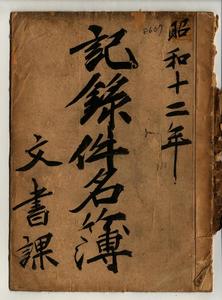 昭和十二年
記録件名簿
文書課